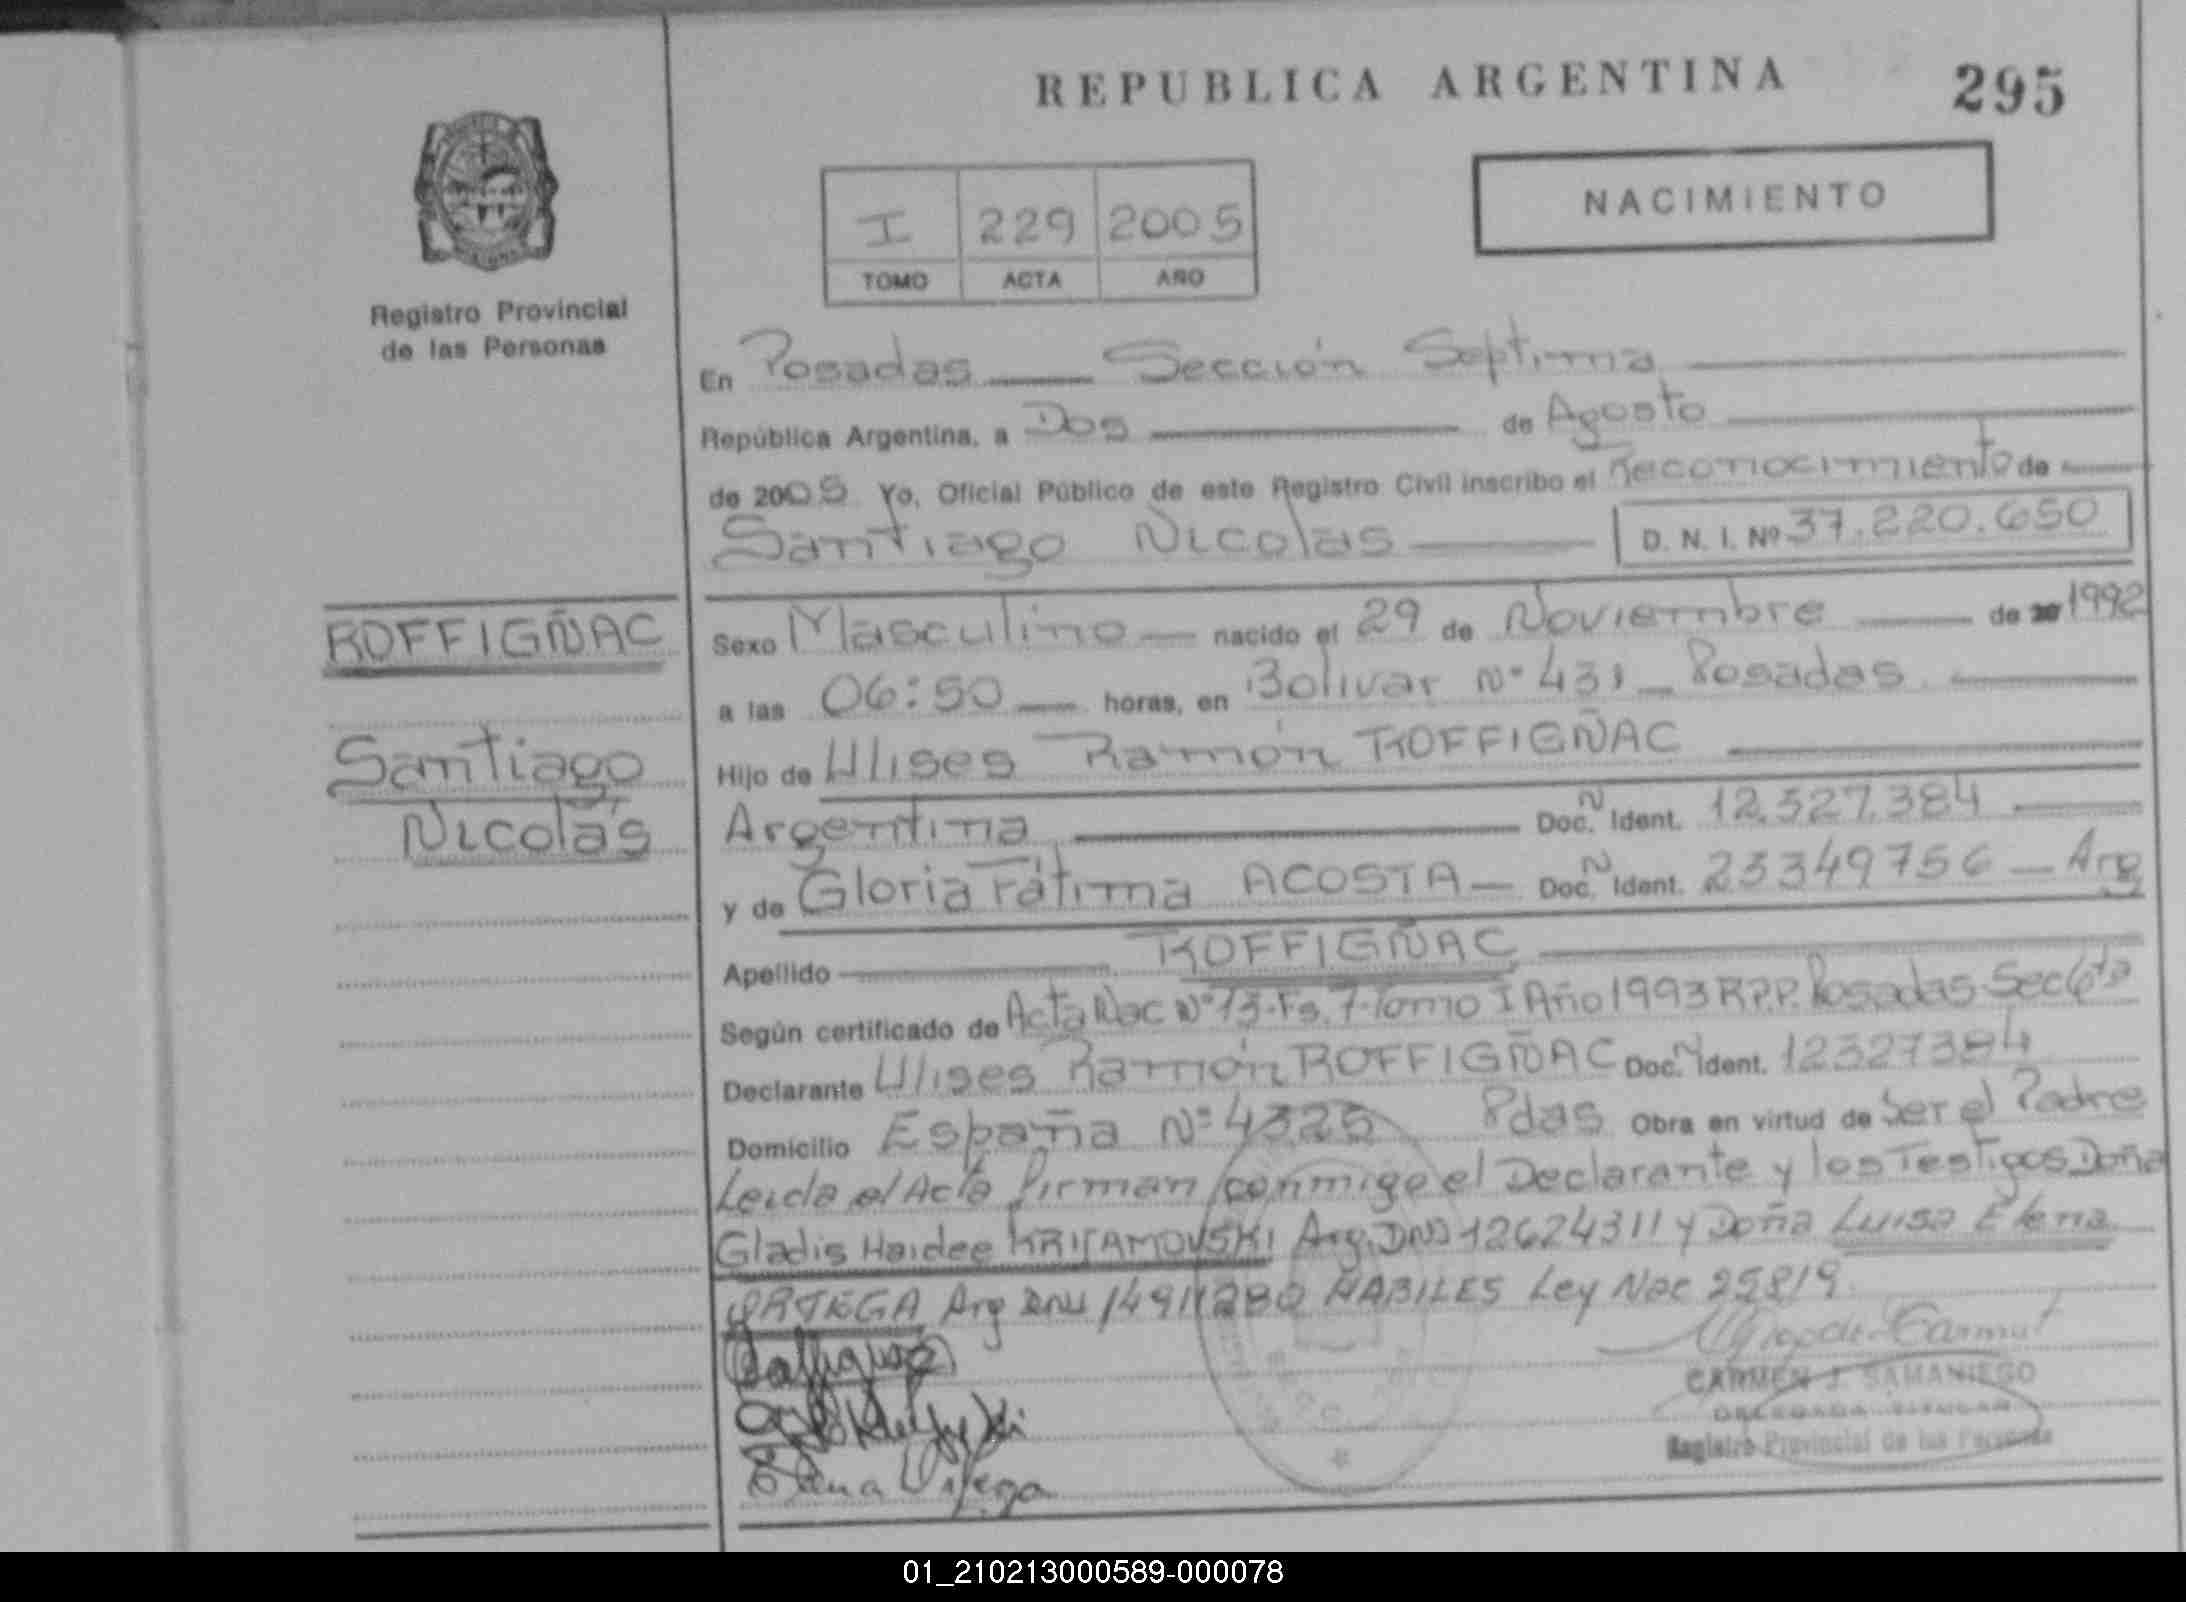 REPUBLICA ARGENTINA 295
Registro Provincial
de las Personas
I 229 2005
TOMO ACTA AÑO
NACIMIENTO
En Posadas Sección Septima
República Argentina, a Dos de Agosto
de 2005 Yo, Oficial Público de este Registro Civil inscribo el Reconocimiento de
Santiago Nicolás D. N. I. Nº 37.220.650
ROFFIGÑAC
Santiago
Nicolás
Sexo Masculino nacido el 29 de Noviembre de 1992
a las 06:50 horas, en Bolivar Nº 431 Posadas
Hijo de Ulises Ramón ROFFIGÑAC
Argentina Doc. N Ident. 12.327.384
y de Gloria Fátima ACOSTA Doc. N Ident. 23349756 Arg
Apellido ROFFIGÑAC
Según certificado de Acta Nac Nº 13. Fs. 7. Tomo I Año 1993 R.P.P. Posadas Sec 6ta
Declarante Ulises Ramón ROFFIGÑAC Doc. N Ident. 12327384
Domicilio España Nº 4325 Pdas Obra en virtud de Ser el Padre
Leida el Acta firman conmigo el Declarante y los Testigos Doña
Gladis Haidee Arg. DNI 12624311 y Doña Luisa Elena
ORTEGA Arg DNI 14911280 HABILES Ley Nac 25819
CARMEN J. SAMANIEGO
DELEGADA TITULAR
Registro Provincial de las Personas
Elena Ortega
01_210213000589-000078